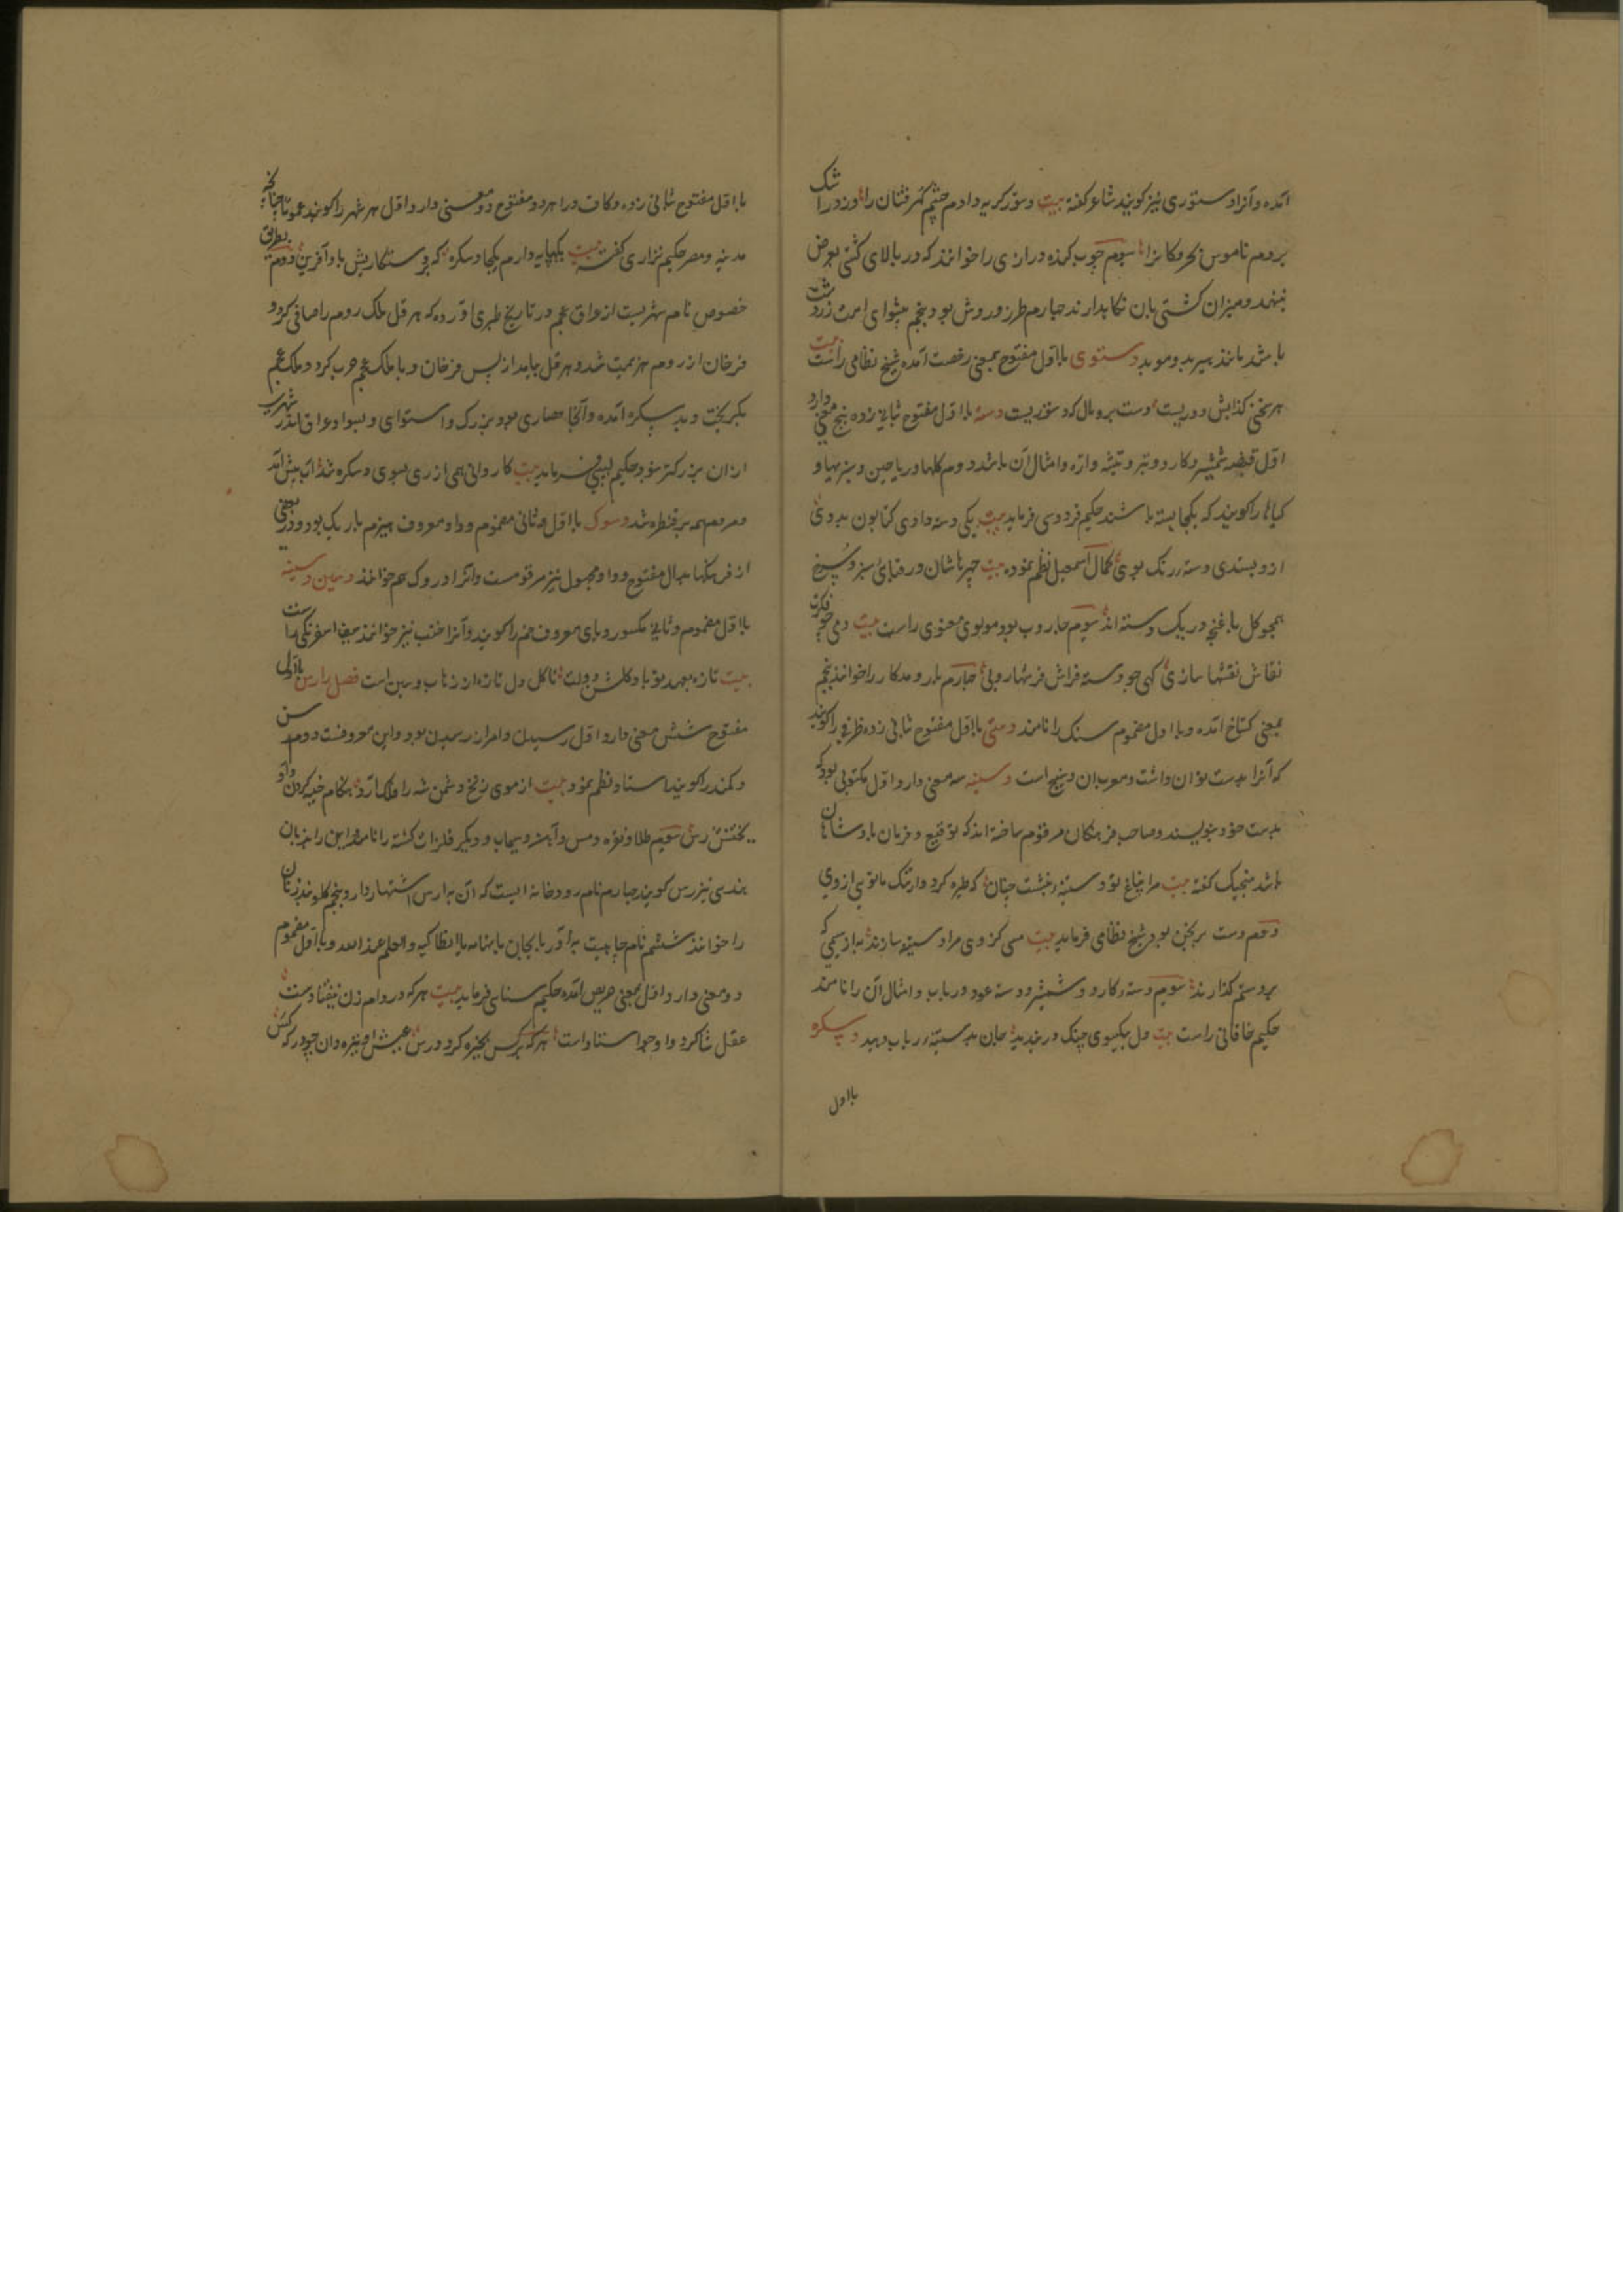 آمده و آنرا دستوری نیز گویند شاعر گفته بیت دستور گریه دادم چشم گهرفشان را دزد اشک را
بردم ناموس بحر و کانرا سیوم چوب گنده درازی را خوانند که در بالای کشتی بعرض
بنهند و میزان کشتی بان نگاهدارند چهارم طرز و روش بود پنجم پیشوای امت زردشت
باشد مانند هیربد و موبد دستوری با اول مفتوح بمعنی رخصت آمده شیخ نظامی راست بیت
هر سخنی کز ادبش دوریست دست برو مال که دستوریست دسته با اول مفتوح بثانی زده پنج معنی دارد
اول قبضه شمشیر و کارد و تبر و تیشه و اره و امثال آن باشد دوم گلها و ریاحین و سبزیها و
گیاها را گویند که یکجا بسته باشند حکیم فردوسی فرماید بیت یکی دسته دادی کتایون بدوی
ازو بستدی دسته رنگ بوی کمال اسمعیل نظم نموده بیت چهرهاشان در قبای سبز و سرخ
همچو گل با غنچه در یک دسته اند سیوم جاروب بود مولوی معنوی راست بیت دمی چو فکرت
نقاش نقشها سازی گهی چو دسته فراش فرشها روبی چهارم یار و مددکار را خوانند پنجم
بمعنی گستاخ آمده و با اول مضموم سنگ را نامند دستی با اول مفتوح ثانی زده ظرفی را گویند
که آنرا بدست توان داشت و معرب آن دستیج است دستینه سه معنی دارد اول مکتوبی بود که
بدست خود بنویسند و صاحب فرهنگان مرقوم ساخته اند که توقیع و فرمان پادشاهان
باشد منجیک گفته بیت
دوم دست برنجن بود شیخ نظامی فرماید بیت مسی کز وی مرا دستینه سازند به از سیمی که
بر دستم گذارند سیوم دسته کارد و شمشیر و دسته عود و رباب و امثال آن را نامند
حکیم خاقانی راست بیت دل بگیسوی چنگ در بندید جان بدستینه رباب دهید دسکره
با اول
با اول مفتوح بثانی زده و کاف و را هر دو مفتوح دو معنی دارد اول هر شهر را گویند عموماً چنانچه
مدینه و مصر حکیم نزاری گفته بیت دوم بطریق
خصوص نام شهریست از عراق عجم در تاریخ طبری آورده که هرقل ملک روم را صافی کرد و
فرخان از روم هزیمت شد و هرقل بیامد از پس فرخان و با ملک عجم حرب کرد و ملک عجم
بگریخت و بدسکره آمده و آنجا حصاری بود بزرگ و استوای و بسواد عراق اندر شهری
از آن بزرگتر نبود حکیم لبیبی فرماید بیت کاروانی همی از ری بسوی دسکره شد آب پیش آمد
و مردم همه بر قنطره شد دسوک با اول و ثانی مضموم و واو معروف هیزم باریک بود و در بعضی
از فرهنگها بدال مفتوح و واو مجهول نیز مرقومست و آنرا دروک هم خوانند دسین و دسینه
با اول مضموم و ثانی مکسور و یای معروف خم را گویند و آنرا خنب نیز خوانند سیف اسفرنگی راست
بیت تازه بعهد تو باد گلشن دولت تا گل دل تازه از زهاب دسین است فصل را رس با اول
مفتوح شش معنی دارد اول رسیدن و امر از رسیدن بود و این معروفست دوم رسن
و کمند را گویند استاد نظم نمود بیت
سیوم طلا و نقره و مس و آهن و سیماب و دیگر فلزات کشته را نامند و این را بزبان
هندی نیز رس گویند چهارم نام رودخانه ایست که آن به ارس اشتهار دارد پنجم گلوبند زنان
را خوانند ششم نام جاییست به آذربایجان یا بنامه یا انطاکیه و العلم عند الله و با اول مضموم
دو معنی دارد اول بمعنی حریص آمده حکیم سنایی فرماید بیت هر که در دام زن نیفتادست
عقل شاگرد و او چو استادست